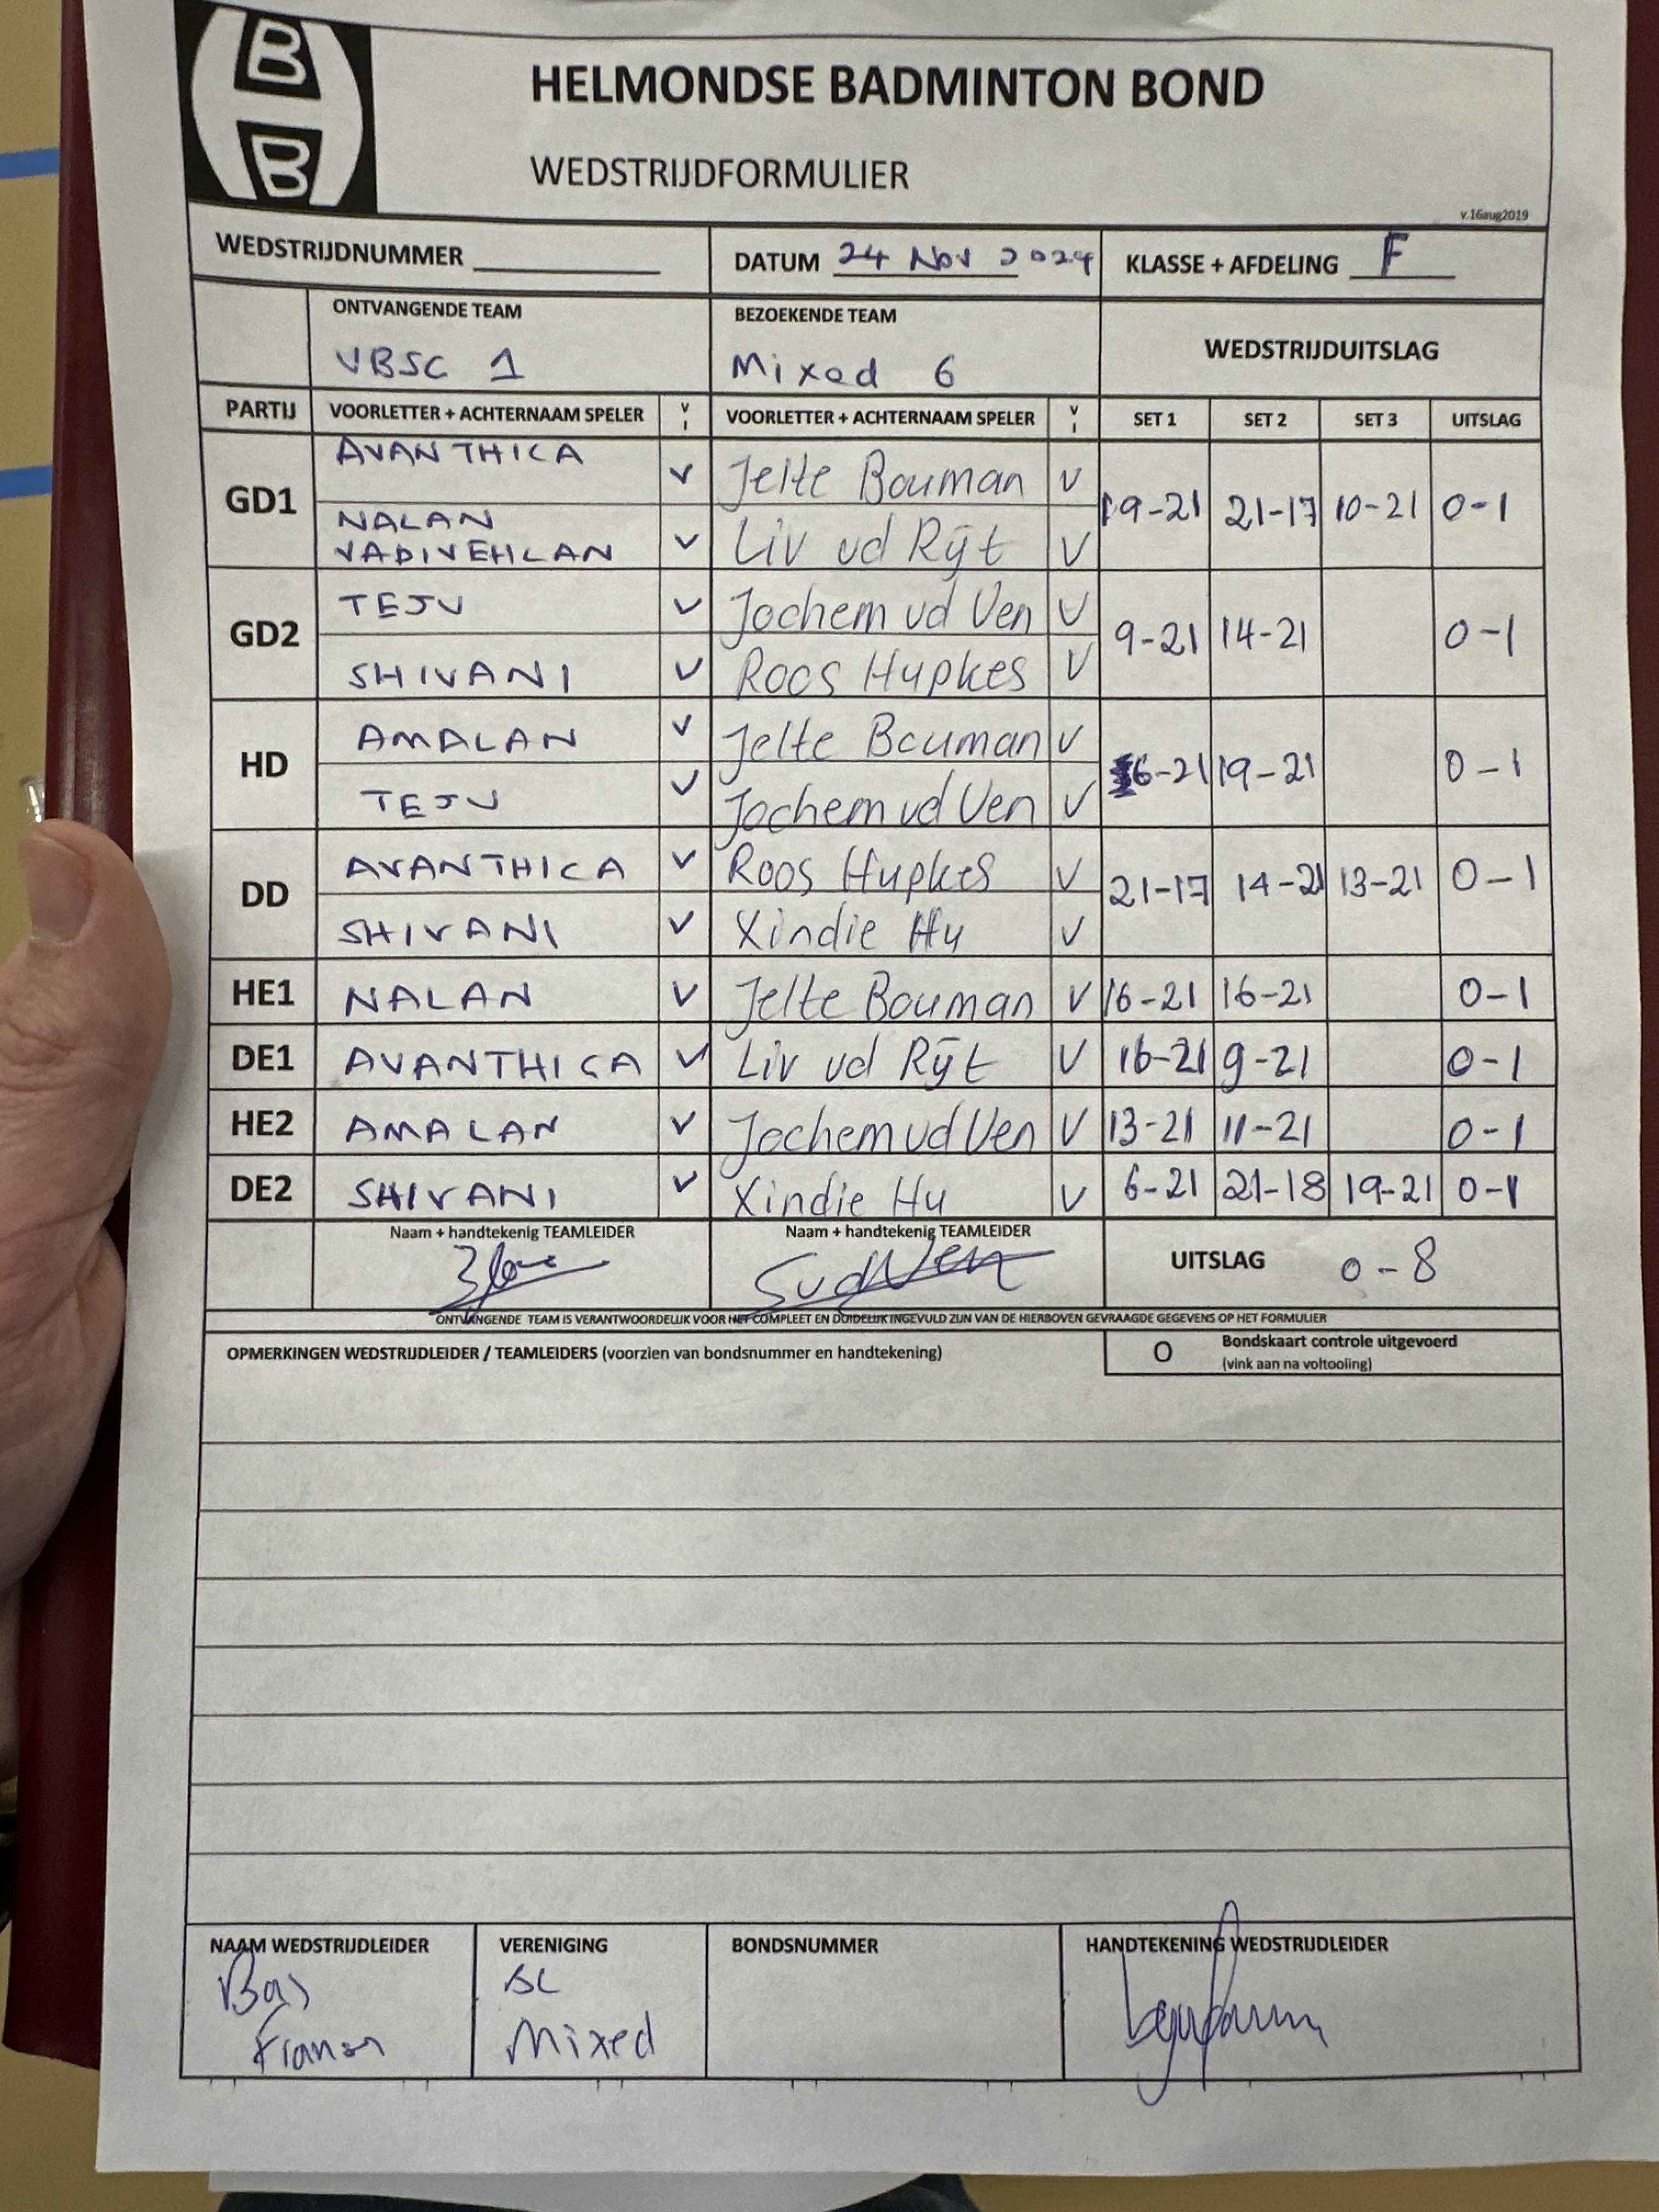 B
B
HELMONDSE BADMINTON BOND
WEDSTRIJDFORMULIER
v.16aug2019
WEDSTRIJDNUMMER DATUM 24 Nov 2024 KLASSE + AFDELING F
ONTVANGENDE TEAM BEZOEKENDE TEAM WEDSTRIJDUITSLAG
VBSC 1 Mixed 6
PARTIJ VOORLETTER + ACHTERNAAM SPELER V VOORLETTER + ACHTERNAAM SPELER V SET 1 SET 2 SET 3 UITSLAG
GD1 AVANTHICA V Jelte Bouman V 19-21 21-17 10-21 0-1
NALAN
VADIVEHLAN V Liv vd Rijt V
GD2 TEJU V Jochem vd Ven V 9-21 14-21 0-1
SHIVANI V Roos Hupkes V
HD AMALAN V Jelte Bouman V 6-21 19-21 0-1
TEJU V Jochem vd Ven V
DD AVANTHICA V Roos Hupkes V 21-17 14-21 13-21 0-1
SHIVANI V Xindie Hu V
HE1 NALAN V Jelte Bouman V 16-21 16-21 0-1
DE1 AVANTHICA V Liv vd Rijt V 16-21 9-21 0-1
HE2 AMALAN V Jochem vd Ven V 13-21 11-21 0-1
DE2 SHIVANI V Xindie Hu V 6-21 21-18 19-21 0-1
Naam + handtekenig TEAMLEIDER Naam + handtekenig TEAMLEIDER UITSLAG 0-8
SvdVen
ONTVANGENDE TEAM IS VERANTWOORDELIJK VOOR HET COMPLEET EN DUIDELIJK INGEVULD ZIJN VAN DE HIERBOVEN GEVRAAGDE GEGEVENS OP HET FORMULIER
OPMERKINGEN WEDSTRIJDLEIDER / TEAMLEIDERS (voorzien van bondsnummer en handtekening) O Bondskaart controle uitgevoerd
(vink aan na voltooling)
NAAM WEDSTRIJDLEIDER VERENIGING BONDSNUMMER HANDTEKENING WEDSTRIJDLEIDER
Bas BC
Mixed